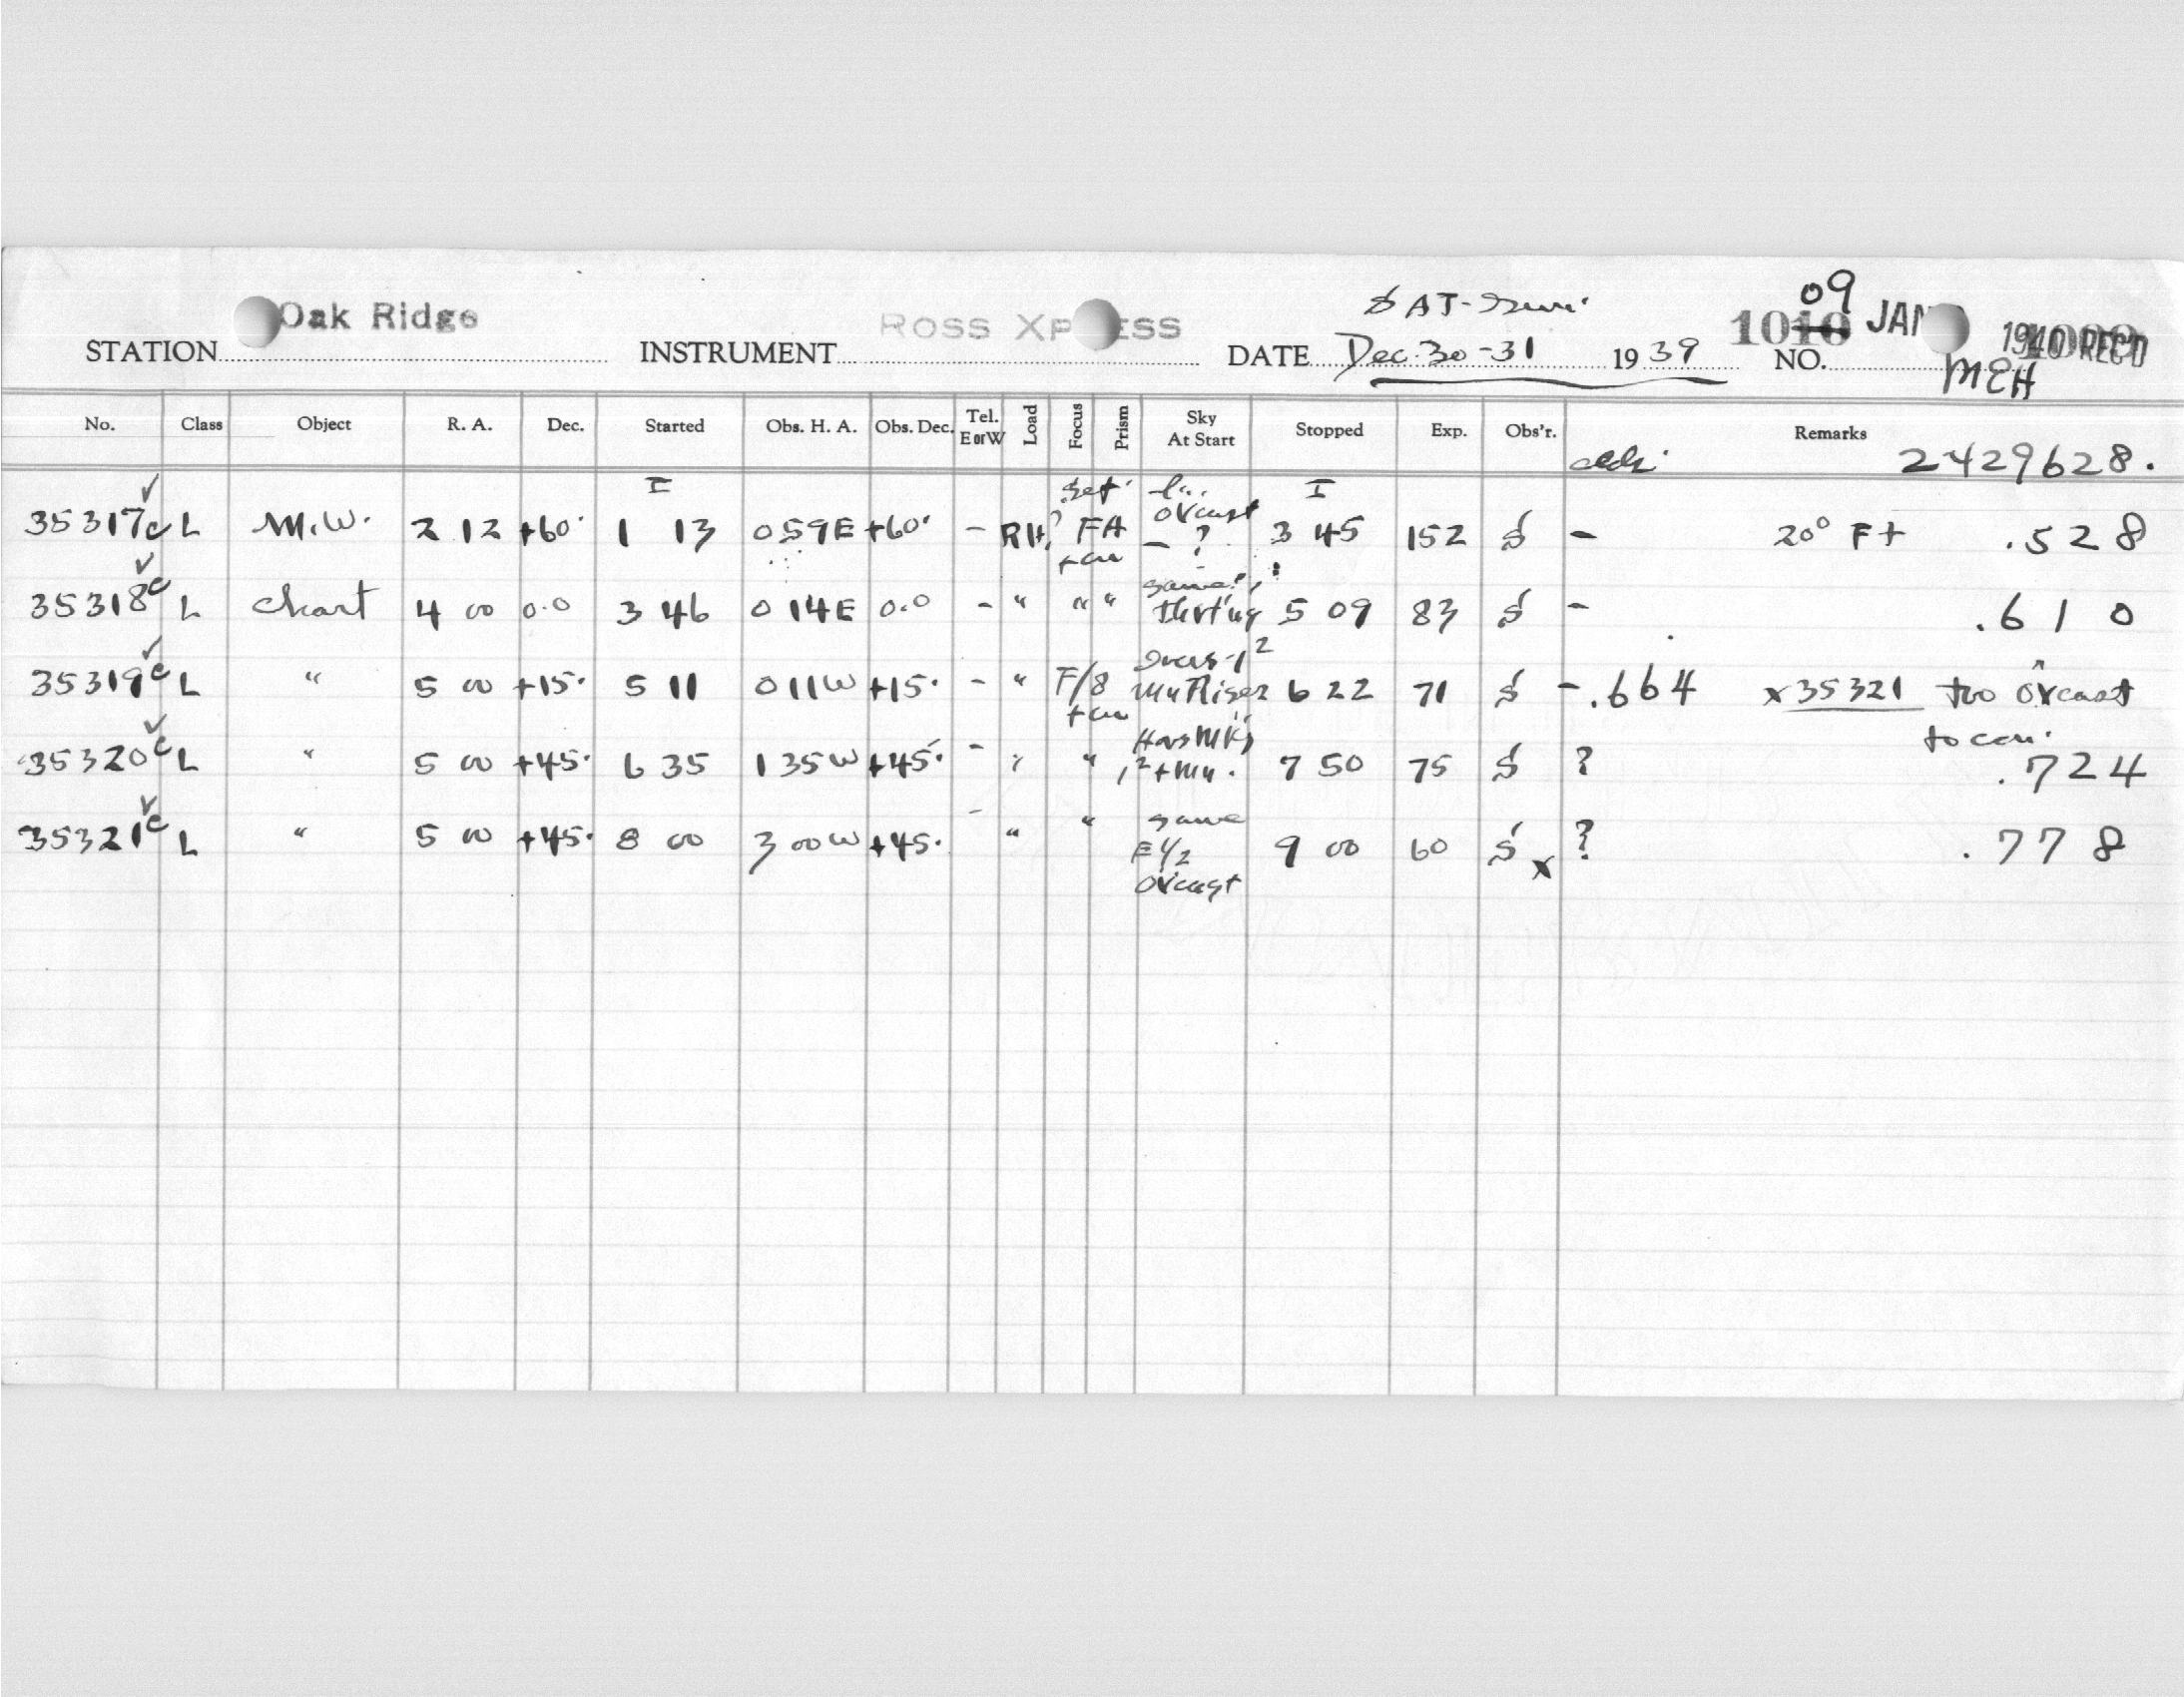 Oak Ridge ROSS XP ESS SAT- 09
STATION INSTRUMENT DATE Dec. 30-31 1939 NO. 1010 JAN 1940 REC'D
MEH
No. Class Object R. A. Dec. Started Obs. H. A. Obs. Dec. Tel. E or W Load Focus Prism Sky At Start Stopped Exp. Obs'r. Remarks
2429628.
35317c L M.W. 2 12 +60° 1 13 0 59E +60° - RH FA ovcast - ? 3 45 152 S - 20° F+ .528
35318c L Chart 4 00 0.0 3 46 0 14E 0.0 - " " " same 5 09 83 S - .610
35319c L " 5 00 +15° 5 11 0 11W +15° - " F/8 6 22 71 S - .664 x 35321 too ovcast
35320c L " 5 00 +45° 6 35 1 35W +45° - " " 7 50 75 S ? .724
35321c L " 5 00 +45° 8 00 3 00W +45° - " " same E 1/2 ovcast 9 00 60 S x ? .778